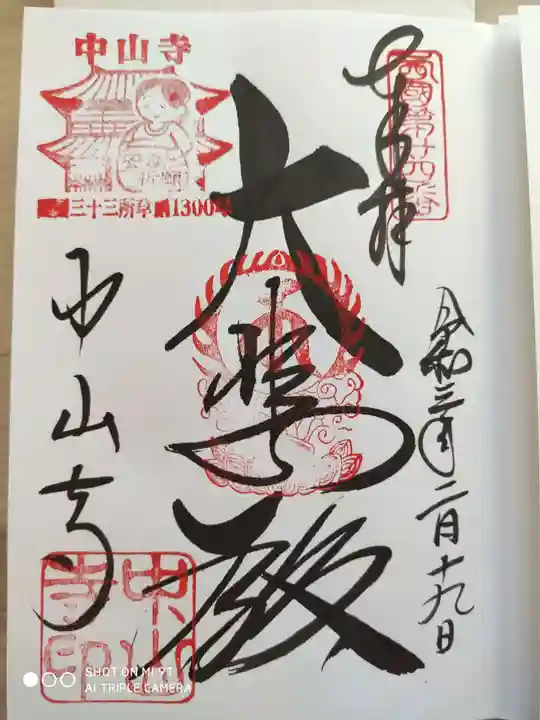 西國第廿四番
奉拝
令和三年二月十九日
大悲殿
中山寺
三十三所草創1300年
中山寺
中山寺印
SHOT ON MI 9T
AI TRIPLE CAMERA